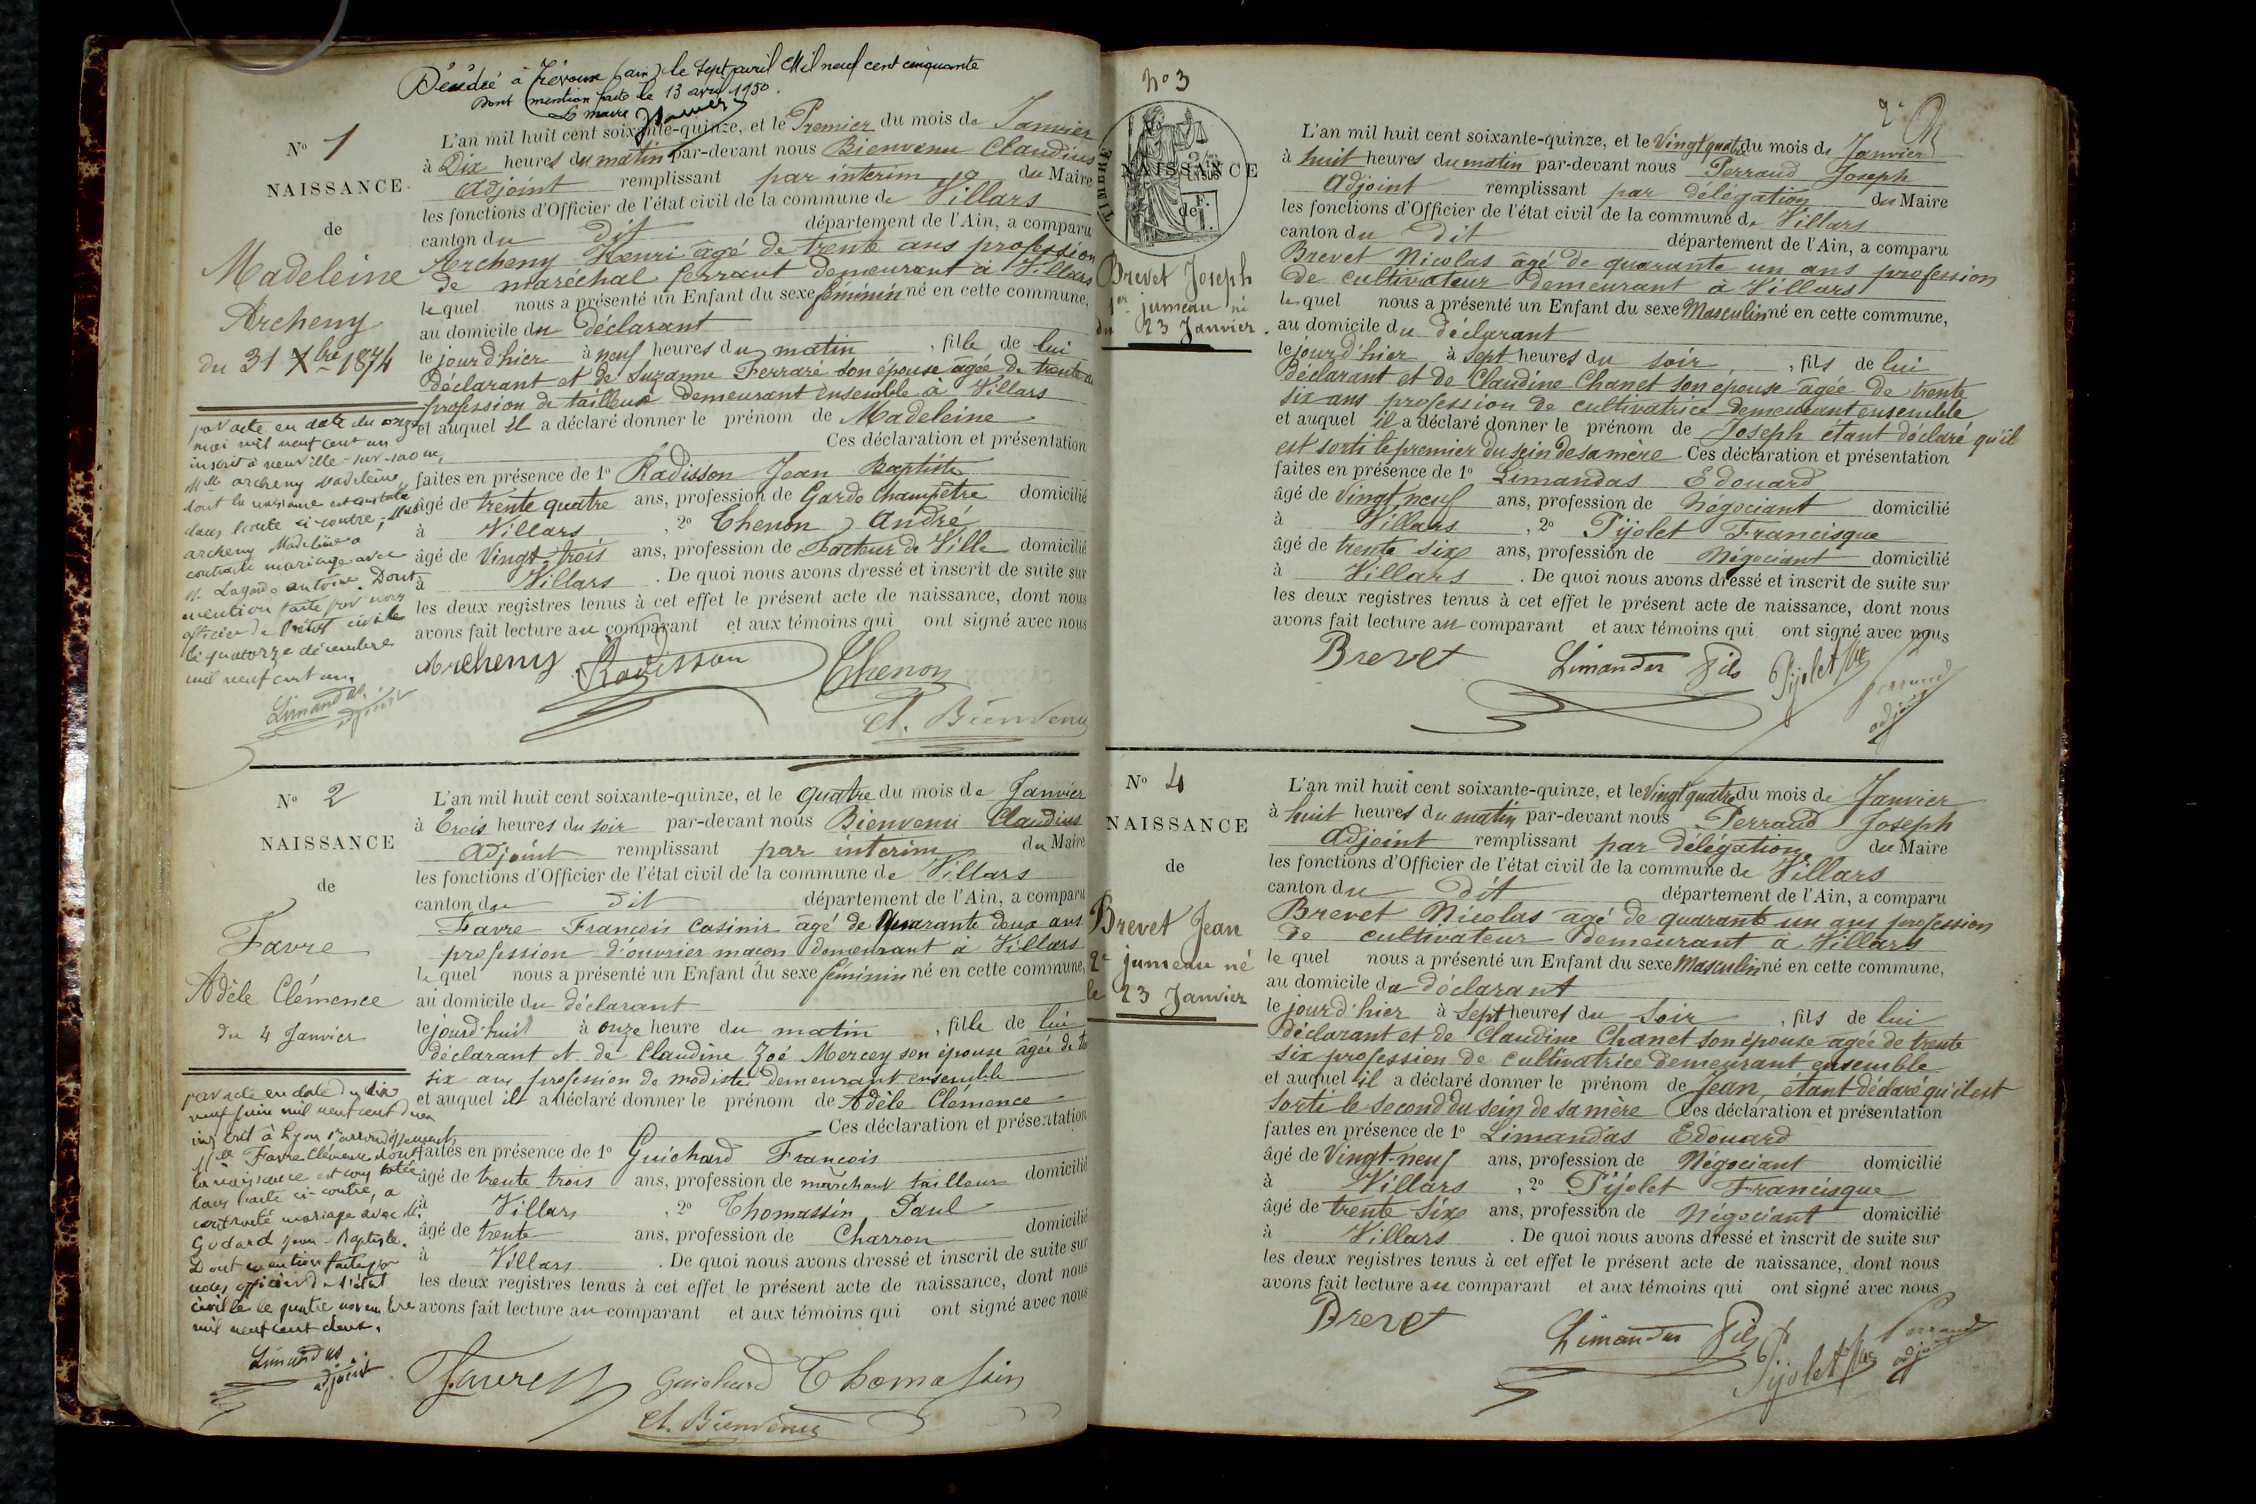 Décédée à Trévoux (ain) le sept avril Mil neuf cent cinquante
Dont mention faite le 13 avril 1950.
Le maire
No 1
NAISSANCE
de
Madeleine
Archeny
du 31 Xbre 1874
par acte en date du onze
mai mil neuf cent un
inscrit à neuville-sur-saone,
Mlle archeny Madeleine,
dont la naissance est constatée
dans l'acte ci-contre, Mlle
archeny Madeleine a
contracté mariage avec
M. Lagarde antoine. Dont
mention faite par nous
officier de l'état civil le
le quatorze décembre
mil neuf cent un.
Limandas
adjoint
L'an mil huit cent soixante-quinze, et le Premier du mois de Janvier
à Dix heures du matin par-devant nous Bienvenu Claudius
adjoint remplissant par interim du Maire
les fonctions d'Officier de l'état civil de la commune de Villars
canton du dit département de l'Ain, a comparu
Archeny Henri âgé de trente ans profession
de maréchal ferrant demeurant à Villars
lequel nous a présenté un Enfant du sexe féminin né en cette commune,
au domicile du déclarant
le jour d'hier à neuf heures du matin , fille de lui
déclarant et de Suzanne Ferrare son épouse âgée de trente
profession de tailleuse demeurant ensemble à Villars
et auquel il a déclaré donner le prénom de Madeleine
Ces déclaration et présentation
faites en présence de 1o Radisson Jean Baptiste
âgé de trente quatre ans, profession de Garde Champêtre domicilié
à Villars , 2o Thenon André
âgé de Vingt trois ans, profession de Facteur de Ville domicilié
à Villars . De quoi nous avons dressé et inscrit de suite sur
les deux registres tenus à cet effet le présent acte de naissance, dont nous
avons fait lecture au comparant et aux témoins qui ont signé avec nous
Archeny Radisson Thenon
Cl. Bienvenu
No 2
NAISSANCE
de
Favre
Adèle Clémence
du 4 Janvier
par acte en date du dix
neuf juin mil neuf cent deux
inscrit à Lyon arrondissement,
Mlle Favre Clémence dont
la naissance est constatée
dans l'acte ci-contre, a
contracté mariage avec M.
Godard Jean-Baptiste.
Dont mention faite par
nous officier de l'état
civil le le quatre novembre
mil neuf cent deux.
Limandas
adjoint
L'an mil huit cent soixante-quinze, et le quatre du mois de Janvier
à Trois heures du soir par-devant nous Bienvenu Claudius
adjoint remplissant par interim du Maire
les fonctions d'Officier de l'état civil de la commune de Villars
canton du dit département de l'Ain, a comparu
Favre François Casimir âgé de Quarante deux ans
profession d'ouvrier maçon demeurant à Villars
lequel nous a présenté un Enfant du sexe féminin né en cette commune,
au domicile du déclarant
le jourd'huit à onze heure du matin , fille de lui
déclarant et de Claudine Zoé Mercey son épouse âgée de
six ans profession de modiste demeurant ensemble
et auquel il a déclaré donner le prénom de Adèle Clémence
Ces déclaration et présentation
faites en présence de 1o Guichard François
âgé de trente trois ans, profession de marchant tailleur domicilié
à Villars , 2o Thomassin Paul
âgé de trente ans, profession de Charron domicilié
à Villars . De quoi nous avons dressé et inscrit de suite sur
les deux registres tenus à cet effet le présent acte de naissance, dont nous
avons fait lecture au comparant et aux témoins qui ont signé avec nous
Favre Guichard Thomassin
Cl. Bienvenu
2e
No 3
TIMBRE
NAISSANCE
de
Brevet Joseph
1er jumeau né
du 23 Janvier.
L'an mil huit cent soixante-quinze, et le Vingt quatre du mois de Janvier
à huit heures du matin par-devant nous Perraud Joseph
adjoint remplissant par délégation du Maire
les fonctions d'Officier de l'état civil de la commune de Villars
canton du dit département de l'Ain, a comparu
Brevet Nicolas âgé de quarante un ans profession
de cultivateur demeurant à Villars
lequel nous a présenté un Enfant du sexe Masculin né en cette commune,
au domicile du déclarant
le jour d'hier à sept heures du soir , fils de lui
déclarant et de Claudine Chanet son épouse âgée de trente
six ans profession de cultivatrice demeurant ensemble
et auquel il a déclaré donner le prénom de Joseph étant déclaré qu'il
est sorti le premier du sein de sa mère Ces déclaration et présentation
faites en présence de 1o Limandas Edouard
âgé de Vingt neuf ans, profession de Négociant domicilié
à Villars , 2o Pijolet Francisque
âgé de trente six ans, profession de Négociant domicilié
à Villars . De quoi nous avons dressé et inscrit de suite sur
les deux registres tenus à cet effet le présent acte de naissance, dont nous
avons fait lecture au comparant et aux témoins qui ont signé avec nous
Brevet Limandas fils Pijolet Perraud
adjoint
No 4
NAISSANCE
de
Brevet Jean
2e jumeau né
le 23 Janvier
L'an mil huit cent soixante-quinze, et le Vingt quatre du mois de Janvier
à huit heures du matin par-devant nous Perraud Joseph
adjoint remplissant par délégation du Maire
les fonctions d'Officier de l'état civil de la commune de Villars
canton du dit département de l'Ain, a comparu
Brevet Nicolas âgé de quarante un ans profession
de cultivateur demeurant à Villars
lequel nous a présenté un Enfant du sexe Masculin né en cette commune,
au domicile du déclarant
le jour d'hier à sept heures du soir , fils de lui
déclarant et de Claudine Chanet son épouse âgée de trente
six profession de cultivatrice demeurant ensemble
et auquel il a déclaré donner le prénom de Jean, étant déclaré qu'il est
sorti le second du sein de sa mère Ces déclaration et présentation
faites en présence de 1o Limandas Edouard
âgé de Vingt-neuf ans, profession de Négociant domicilié
à Villars , 2o Pijolet Francisque
âgé de trente six ans, profession de Négociant domicilié
à Villars . De quoi nous avons dressé et inscrit de suite sur
les deux registres tenus à cet effet le présent acte de naissance, dont nous
avons fait lecture au comparant et aux témoins qui ont signé avec nous
Brevet Limandas fils Pijolet Perraud
adjoint